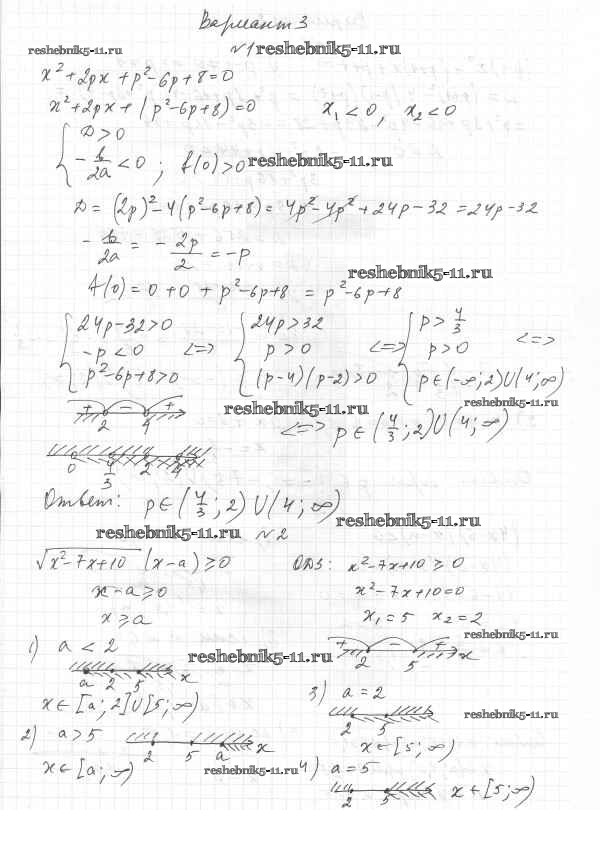 Вариант 3
reshebnik5-11.ru
№1 reshebnik5-11.ru
x² + 2px + p² - 6p + 8 = 0
x² + 2px + (p² - 6p + 8) = 0    x₁ < 0, x₂ < 0
{ D > 0
- b/2a < 0 ; f(0) > 0 reshebnik5-11.ru
D = (2p)² - 4(p² - 6p + 8) = 4p² - 4p² + 24p - 32 = 24p - 32
- b/2a = - 2p/2 = -p
reshebnik5-11.ru
f(0) = 0 + 0 + p² - 6p + 8 = p² - 6p + 8
{ 24p - 32 > 0    { 24p > 32    { p > 4/3
-p < 0 <=> p > 0 <=> p > 0 <=>
p² - 6p + 8 > 0    (p - 4)(p - 2) > 0    p ∈ (-∞; 2) ∪ (4; ∞)
reshebnik5-11.ru
+ - +
2 4
reshebnik5-11.ru
<=> p ∈ (4/3; 2) ∪ (4; ∞)
0 4/3 2 4
Ответ: p ∈ (4/3; 2) ∪ (4; ∞)
reshebnik5-11.ru
reshebnik5-11.ru №2
√x² - 7x + 10 (x - a) ≥ 0    ОДЗ: x² - 7x + 10 ≥ 0
x - a ≥ 0    x² - 7x + 10 = 0
x ≥ a    x₁ = 5 x₂ = 2
reshebnik5-11.ru
+ - +
2 5 x
1) a < 2
reshebnik5-11.ru
a 2 5 x
x ∈ [a; 2] ∪ [5; ∞)
3) a = 2
2 5
reshebnik5-11.ru
x ∈ [5; ∞)
2) a > 5
2 5 a x
x ∈ [a; ∞)
reshebnik5-11.ru
4) a = 5
2 5
x ∈ [5; ∞)